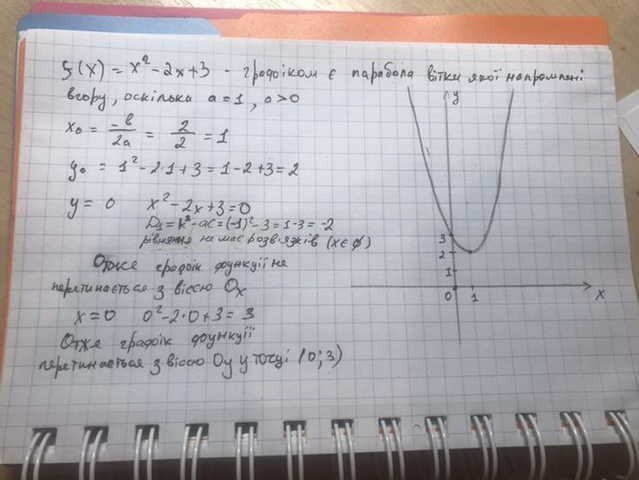 f(x) = x² - 2x + 3 - графіком є парабола вітки якої напрямлені
вгору, оскільки a = 1, a > 0
x₀ = -b/2a = 2/2 = 1
y₀ = 1² - 2·1 + 3 = 1 - 2 + 3 = 2
y = 0 x² - 2x + 3 = 0
D₁ = k² - ac = (-1)² - 3 = 1 - 3 = -2
рівняння не має розвʼязків (x ∈ ∅)
Отже графік функції не
перетинається з віссю Ox
x = 0 0² - 2·0 + 3 = 3
Отже графік функції
перетинається з віссю Oy у точці (0; 3)
y
3
2
1
0 1 x